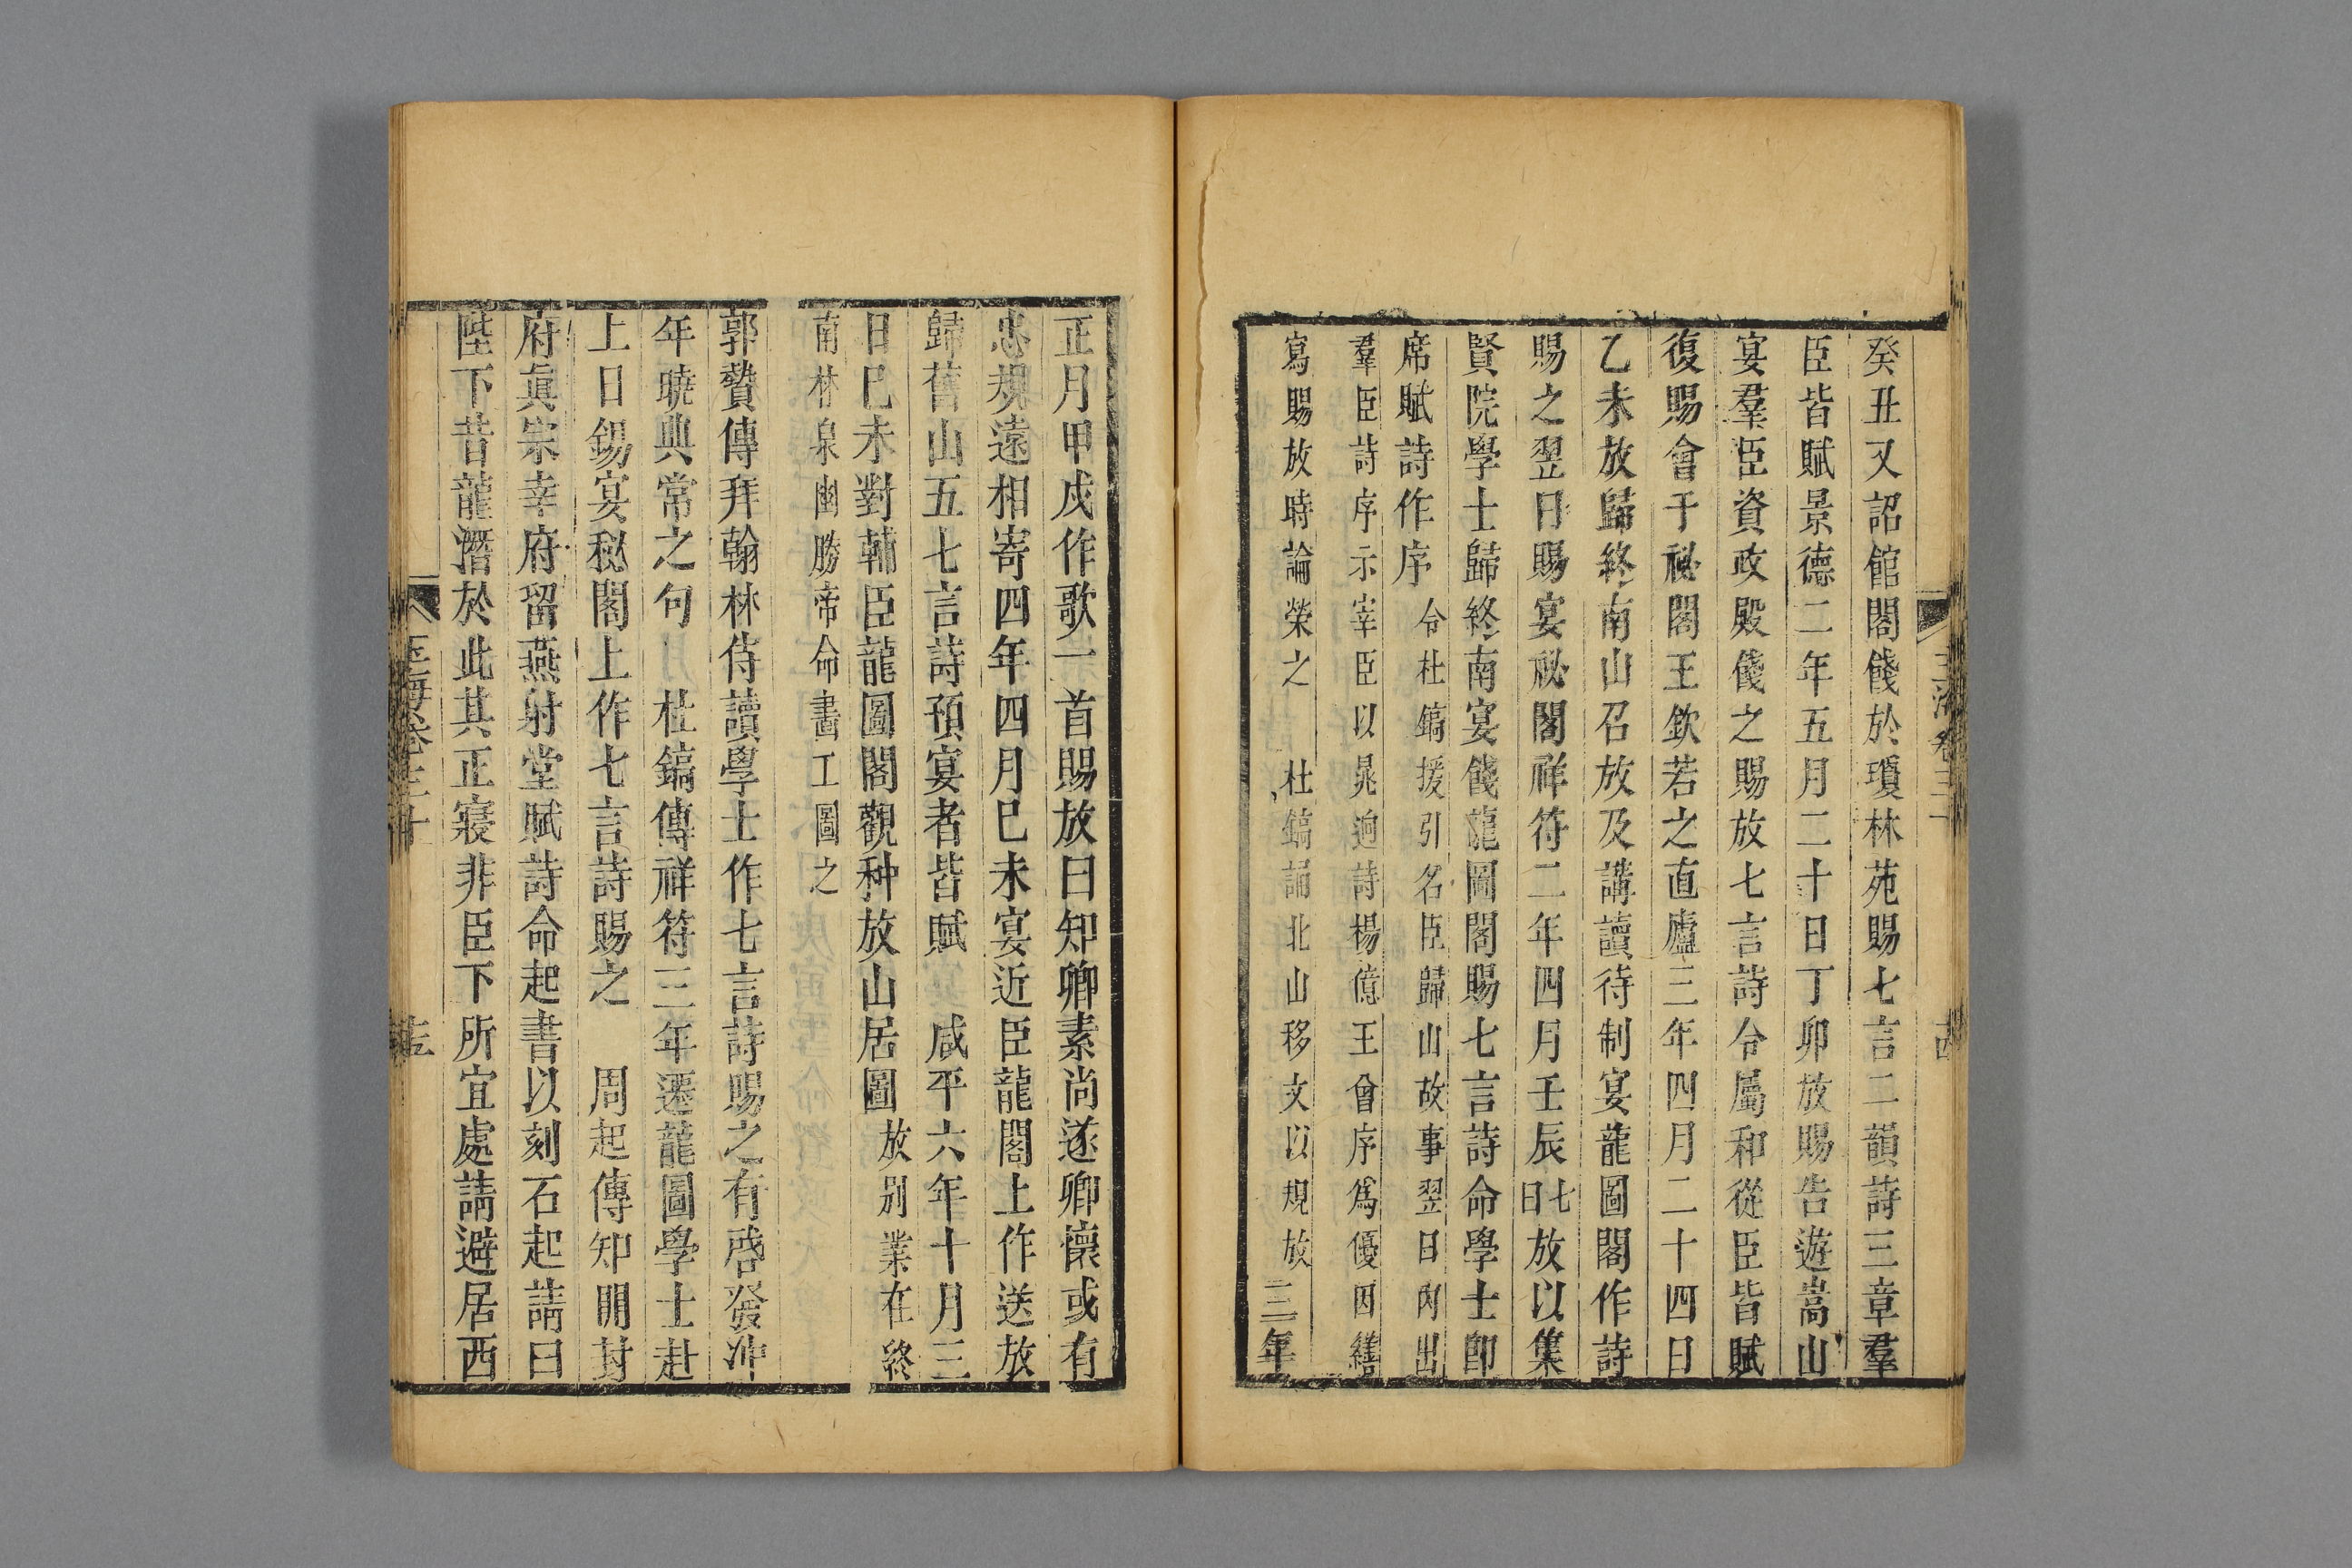 癸丑又詔館閣餞於瓊林苑賜七言二韻詩三章羣
臣皆賦景德二年五月二十日丁卯放賜告遊嵩山
宴羣臣資政殿餞之賜放七言詩令屬和從臣皆賦
復賜會于祕閣王欽若之直廬三年四月二十四日
乙未放歸終南山召放及講讀待制宴龍圖閣作詩
賜之翌日賜宴祕閣祥符二年四月壬辰七日放以集
賢院學士歸終南宴餞龍圖閣賜七言詩命學士卽
席賦詩作序令杜鎬援引名臣歸山故事翌日內出
羣臣詩序示宰臣以晁逈詩楊億王曾序爲優因繕
寫賜放時論榮之 杜鎬誦北山移文以規放 三年
正月甲戌作歌一首賜放曰知卿素尚遂卿懷或有
忠規遠相寄四年四月巳未宴近臣龍閣上作送放
歸舊山五七言詩預宴者皆賦 咸平六年十月三
日巳未對輔臣龍圖閣觀种放山居圖放別業在終
南林泉幽勝帝命畫工圖之
郭贄傳拜翰林侍讀學士作七言詩賜之有啓發沖
年曉典常之句 杜鎬傳祥符三年遷龍圖學士赴
上日錫宴秘閣上作七言詩賜之 周起傳知開封
府眞宗幸府留燕射堂賦詩命起書以刻石起請曰
陛下昔龍潛於此其正寢非臣下所宜處請避居西
玉海卷三十
十五